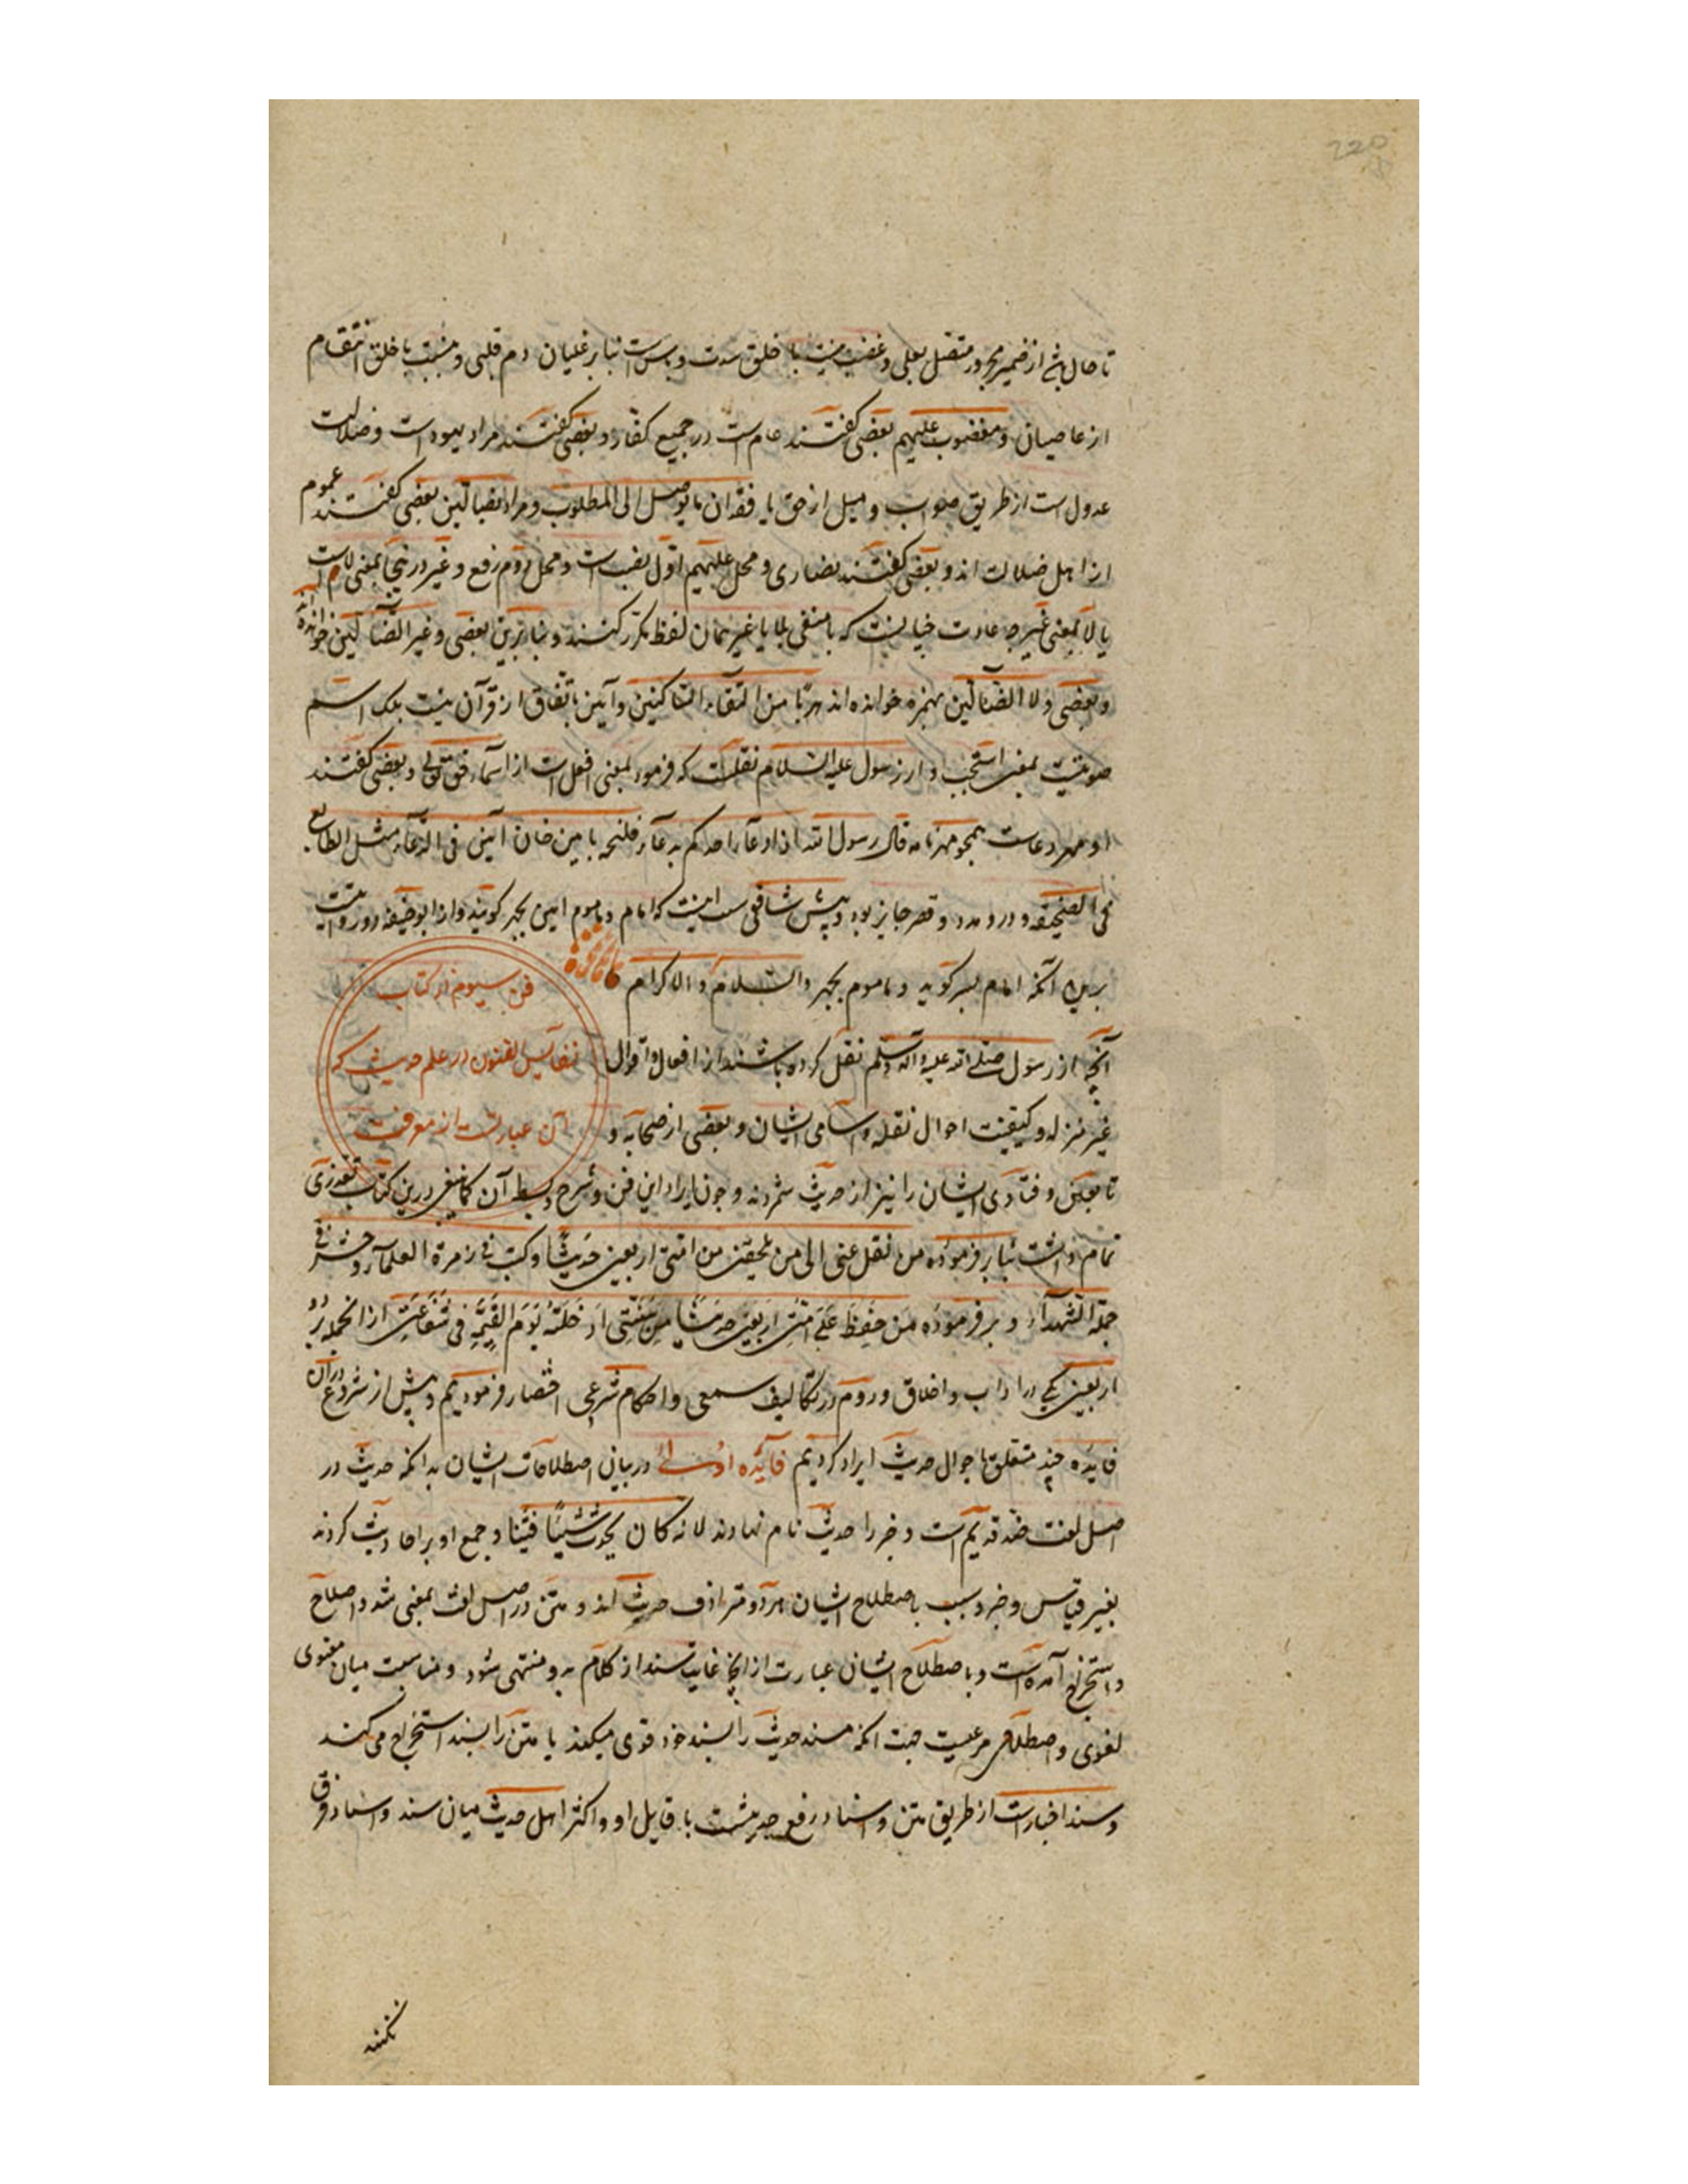 220
تا حال باشد از ضمیر مجرور متصل بعلی و غضب نسبت با خلق است بنابر غلیان دم قلبی و نسبت با خلق انتقام
از عاصیان و مغضوب علیهم بعضی گفتند عام است در جمیع کفار و بعضی گفتند مراد یهود است و ضلالت
عدول است از طریق صواب و میل از حق یا فقدان ما یوصل الی المطلوب و مراد بضالین بعضی گفتند عموم
از اهل ضلالت اند و بعضی گفتند نصاری و محل علیهم اول نصب است و محل دوم رفع و غیر درینجا بمعنی لاست
یا لا بمعنی غیر چه عادت که با منفی بلا یا غیر همان لفظ مکرر کنند و بنابرین بعضی و غیر الضالین خوانده اند
و بعضی ولا الضالین بهمزه خوانده اند هربا من التقاء الساکنین و آمین باتفاق از قرآن نیست بلک اسم
صوتیست بمعنی استجب و از رسول علیه السلام نقلست که فرمود بمعنی افعل است از اسماء حق تعالی و بعضی گفتند
او مهر دعاست همچو مهر نامه قال رسول الله اذا دعا احدکم بدعاء فلیختم بامین فان آمین فی الدعاء مثل الطابع
فی الصحیفه و درو مد و قصر جایز بود و پیش شافعی سنت که امام و ماموم امین بجهر گویند و از ابو حنیفه دو روایت
برین آنکه امام بسر گوید و ماموم بجهر والسلام والاکرام
فن سیوم از کتاب
نفایس الفنون در علم حدیث که
آن عبارتست از معرفت
آنچه از رسول صلی الله علیه وآله وسلم نقل کرده باشند از افعال و اقوال
غیر منزله و کیفیت احوال نقله و اسامی ایشان و بعضی از صحابه و
تابعین و فتاوی ایشان را نیز از حدیث شمردند و چون ایراد این فن و شرح و بسط آن کما ینبغی درین کتاب تعذری
تمام داشت بنابر فرموده من نقل عنی الی من یلحقنی من امتی اربعین حدیثا وکتب فی زمرة العلماء وحشر فی
جملة الشهداء و بر فرموده من حفظ علی امتی اربعین حدیثا من سنتی ادخلته یوم القیمة فی شفاعتی از انجمله بر دو
اربعین یکی در آداب و اخلاق و دوم در تکالیف سمعی و احکام شرعی اختصار فرمودیم و پیش از شروع در آن
فایده چند متعلق باحوال حدیث ایراد کردیم فایده اولی در بیان اصطلاحات ایشان بدانکه حدیث در
اصل لغت ضد قدیم است و خبر را حدیث نام نهادند لانه کان یحدث شیئا فشیئا و جمع او بر احادیث کردند
بغیر قیاس و خبر باصطلاح ایشان هر دو مترادف حدیث اند و متن در اصل لغت بمعنی شد و اصلاح
و استخراج آمده است و باصطلاح ایشان عبارت از آنچه غایت سند از کلام بدو منتهی شود و مناسبت میان معنوی
لغوی و اصطلاحی مرعیست جهت آنکه مسند حدیث را بسند خود قوی میکند یا متن را بسند استخراج می کند
و سند اخبارست از طریق متن و اسناد رفع حدیثست با قایل او و اکثر اهل حدیث میان سند و اسناد فرق
نکنند